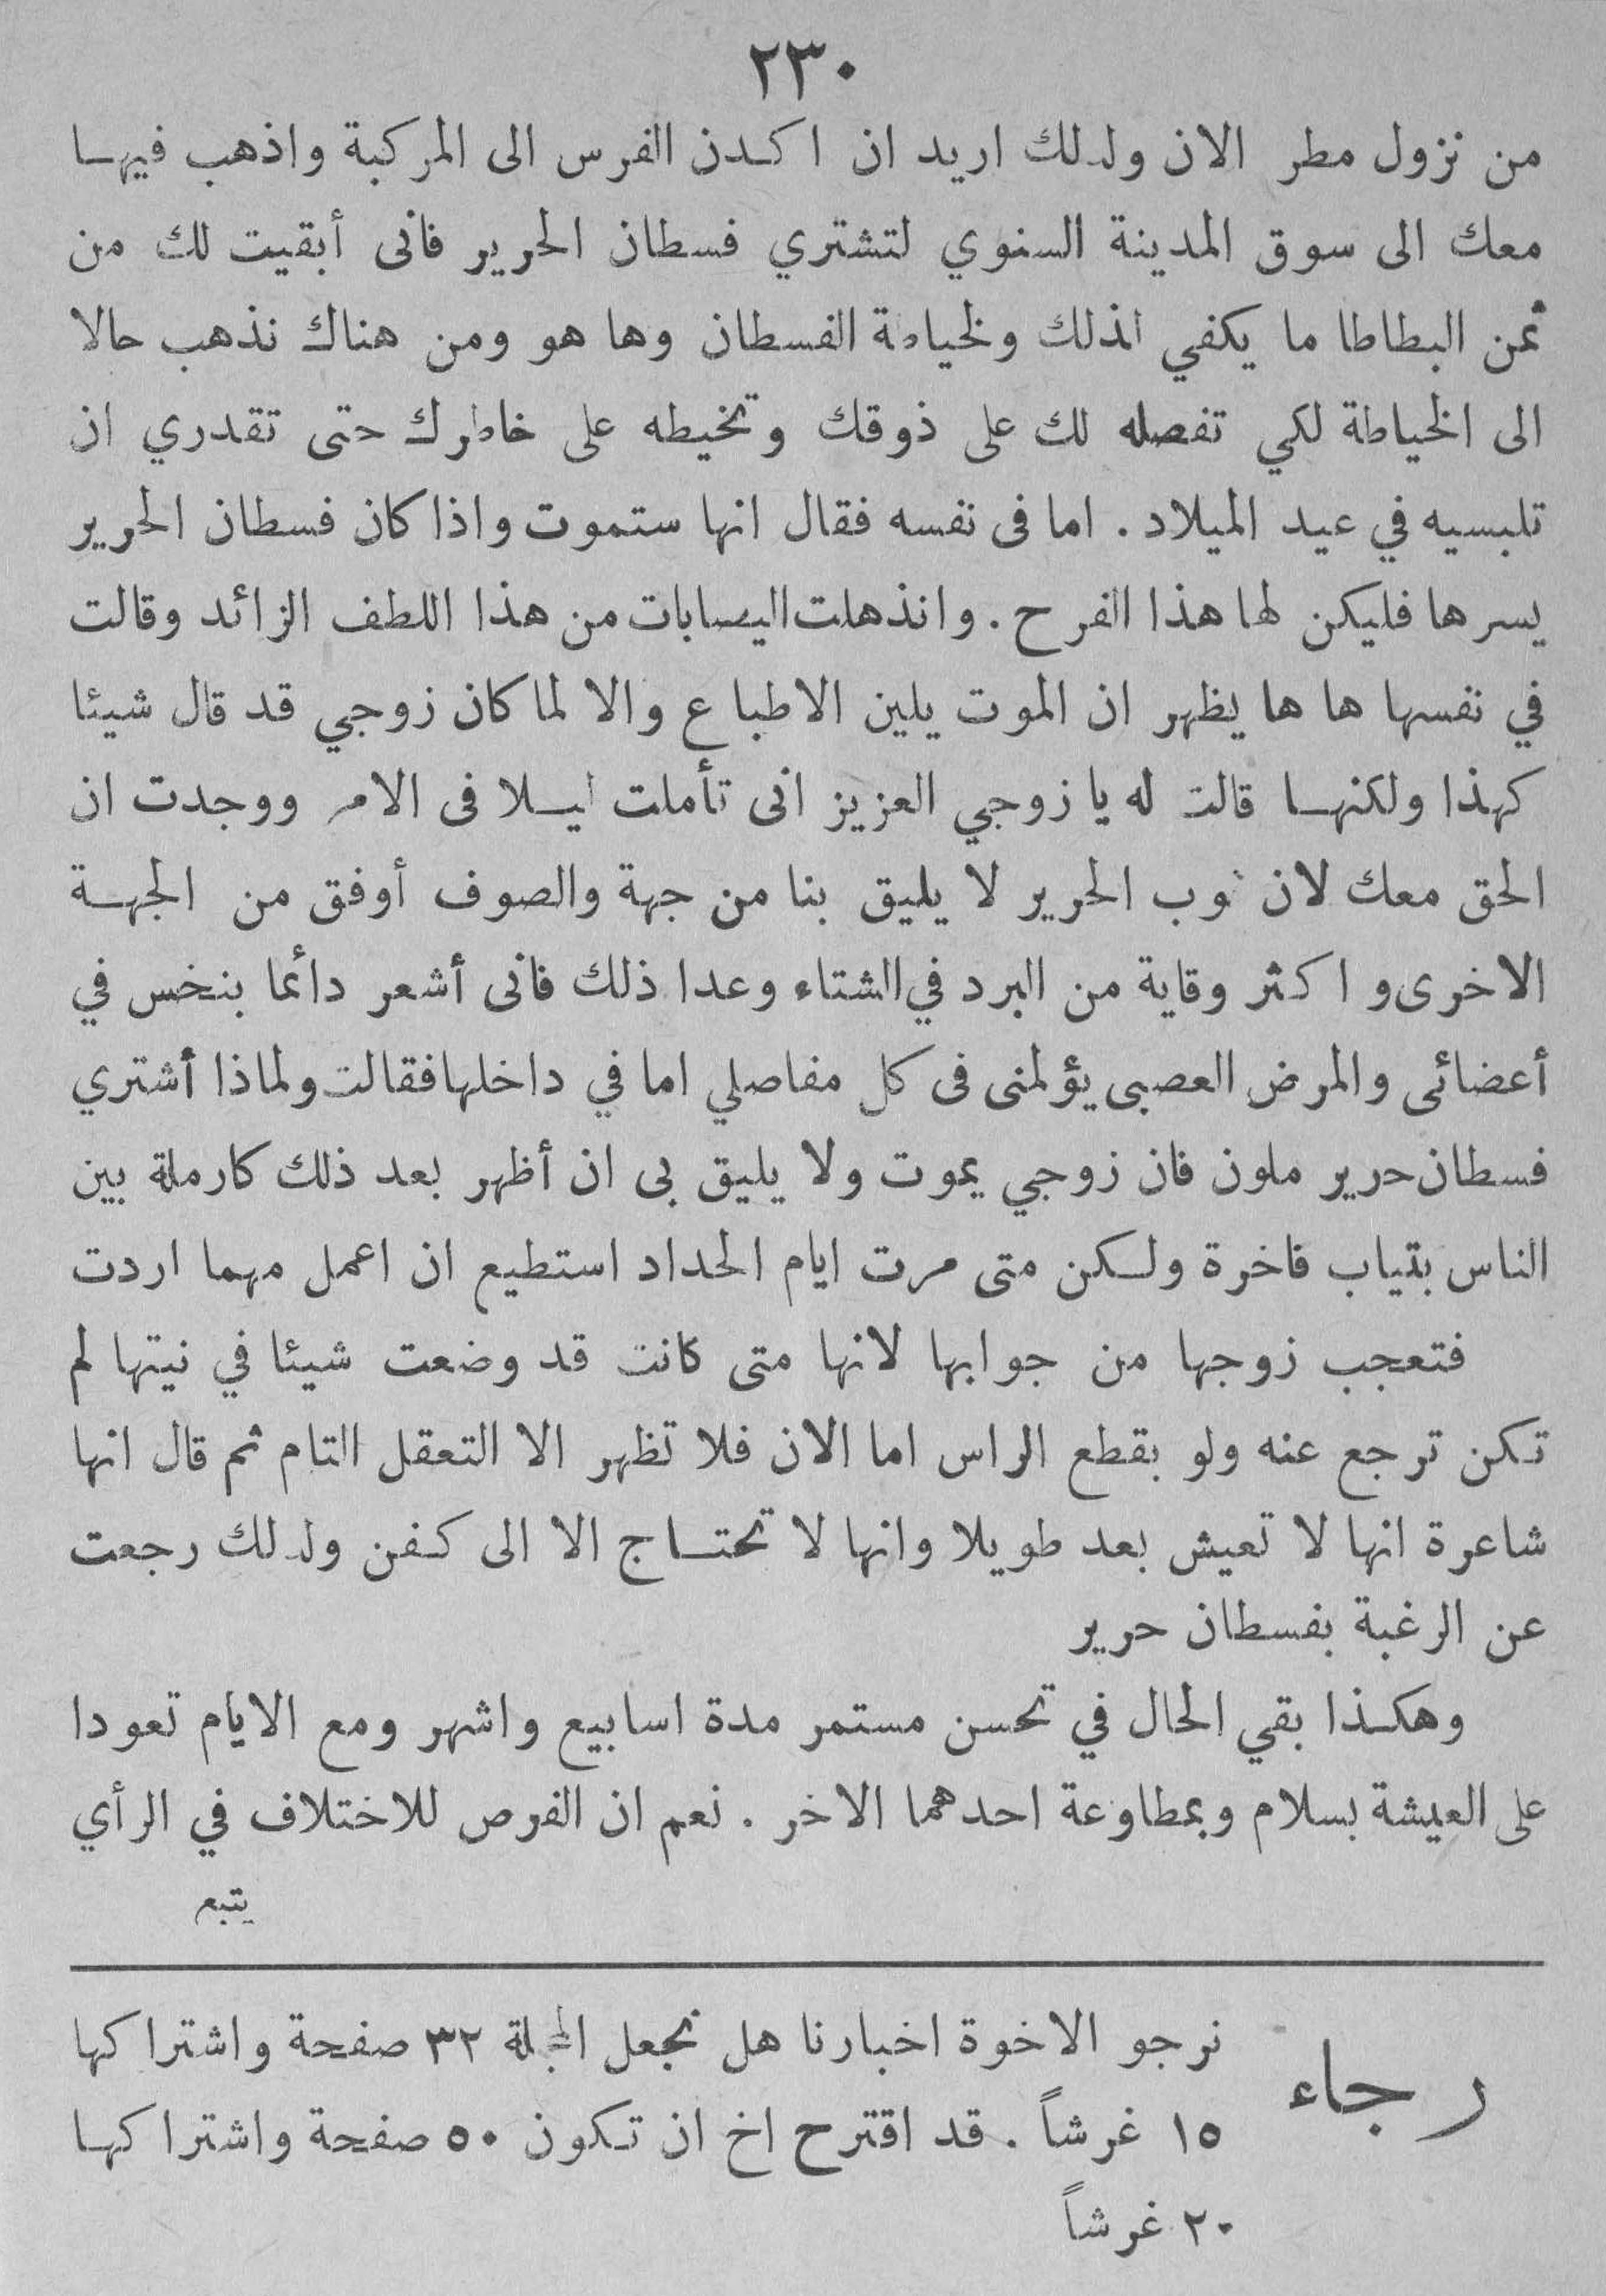 ٢٣٠
من نزول مطر الان ولذلك اريد ان اكدن الفرس الى المركبة واذهب فيها
معك الى سوق المدينة السنوي لتشتري فسطان الحرير فانى أبقيت لك من
ثمن البطاطا ما يكفي لذلك ولخياطة الفسطان وها هو ومن هناك نذهب حالا
الى الخياطة لكي تفصله لك على ذوقك وتخيطه على خاطرك حتى تقدري ان
تلبسيه في عيد الميلاد . اما فى نفسه فقال انها ستموت واذا كان فسطان الحرير
يسرها فليكن لها هذا الفرح . وانذهلت اليصابات من هذا اللطف الزائد وقالت
في نفسها ها ها يظهر ان الموت يلين الاطباع والا لما كان زوجي قد قال شيئا
كهذا ولكنها قالت له يا زوجي العزيز انى تأملت ليلا فى الامر ووجدت ان
الحق معك لان ثوب الحرير لا يليق بنا من جهة والصوف أوفق من الجهة
الاخرى واكثر وقاية من البرد في الشتاء وعدا ذلك فانى أشعر دائما بنخس في
أعضائى والمرض العصبى يؤلمنى فى كل مفاصلي اما في داخلها فقالت ولماذا أشتري
فسطان حرير ملون فان زوجي يموت ولا يليق بى ان أظهر بعد ذلك كارملة بين
الناس بثياب فاخرة ولكن متى مرت ايام الحداد استطيع ان اعمل مهما اردت
فتعجب زوجها من جوابها لانها متى كانت قد وضعت شيئا في نيتها لم
تكن ترجع عنه ولو بقطع الراس اما الان فلا تظهر الا التعقل التام ثم قال انها
شاعرة انها لا تعيش بعد طويلا وانها لا تحتاج الا الى كفن ولذلك رجعت
عن الرغبة بفسطان حرير
وهكذا بقي الحال في تحسن مستمر مدة اسابيع واشهر ومع الايام تعودا
على العيشة بسلام وبمطاوعة احدهما الاخر . نعم ان الفرص للاختلاف في الرأي
يتبع
رجاء
نرجو الاخوة اخبارنا هل نجعل المجلة ٣٢ صفحة واشتراكها
١٥ غرشاً . قد اقترح اخ ان تكون ٥٠ صفحة واشتراكها
٢٠ غرشاً